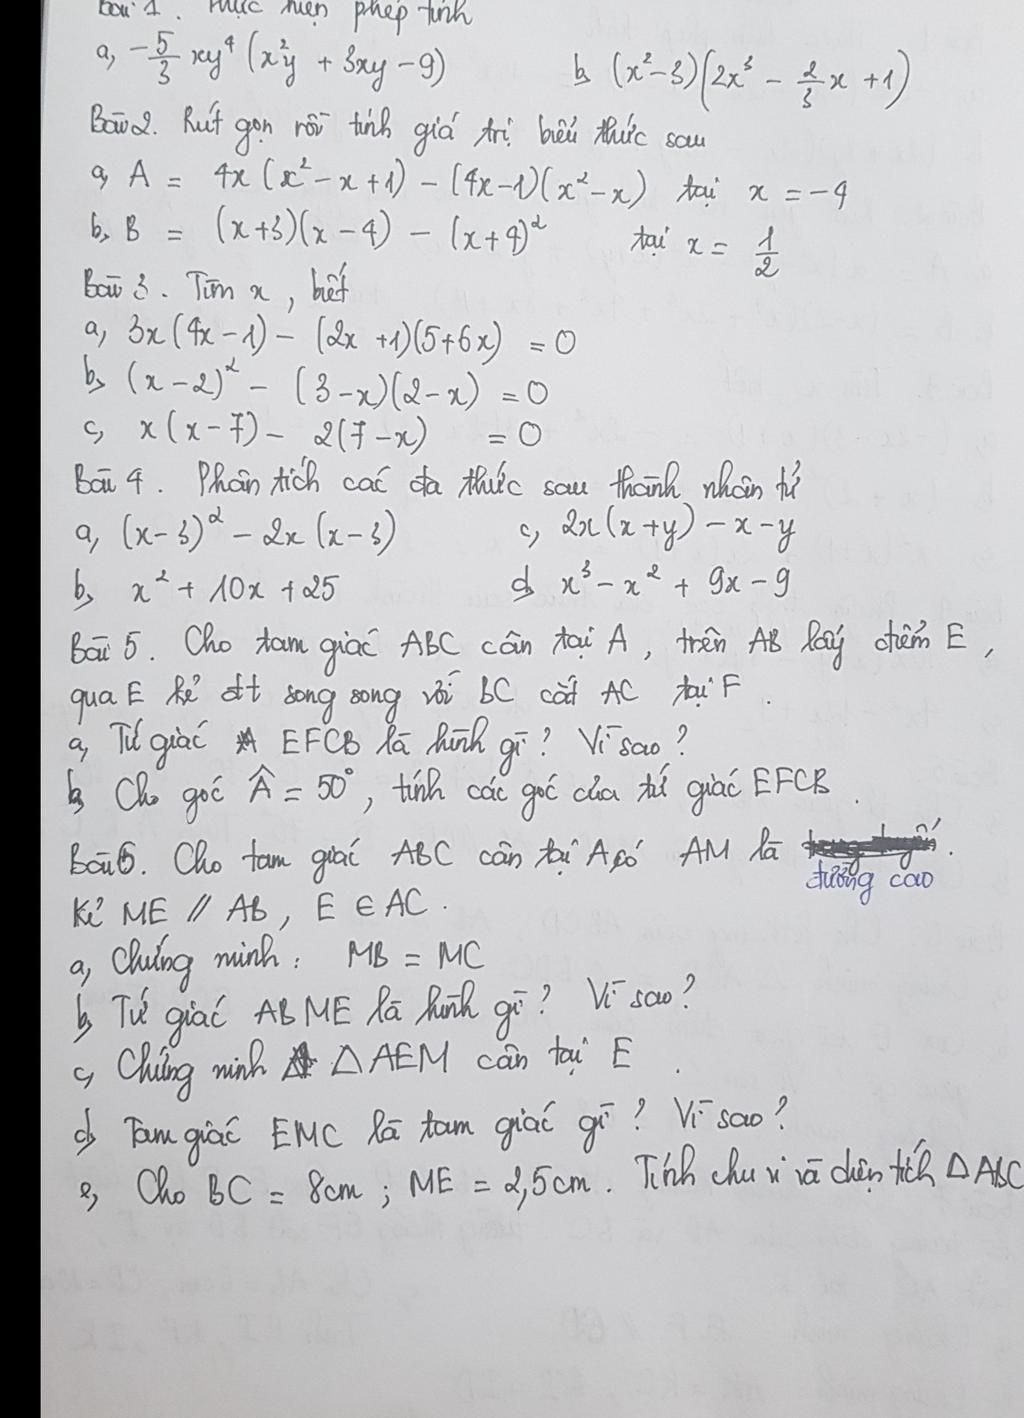 Bài 1. Thực hiện phép tính
a, -5/3 xy⁴ (x²y + 3xy - 9) b, (x² - 3)(2x³ - 2/3 x + 1)
Bài 2. Rút gọn rồi tính giá trị biểu thức sau
a, A = 4x (x² - x + 1) - (4x - 1)(x² - x) tại x = -4
b, B = (x + 3)(x - 4) - (x + 4)² tại x = 1/2
Bài 3. Tìm x, biết
a, 3x (4x - 1) - (2x + 1)(5 + 6x) = 0
b, (x - 2)² - (3 - x)(2 - x) = 0
c, x (x - 7) - 2(7 - x) = 0
Bài 4. Phân tích các đa thức sau thành nhân tử
a, (x - 3)² - 2x (x - 3) c, 2x(x + y) - x - y
b, x² + 10x + 25 d, x³ - x² + 9x - 9
Bài 5. Cho tam giác ABC cân tại A, trên AB lấy điểm E,
qua E kẻ đt song song với BC cắt AC tại F.
a, Tứ giác EFCB là hình gì? Vì sao?
b, Cho góc Â = 50°, tính các góc của tứ giác EFCB.
Bài 6. Cho tam giác ABC cân tại A có AM là
đường cao.
Kẻ ME // AB, E ∈ AC.
a, Chứng minh: MB = MC
b, Tứ giác ABME là hình gì? Vì sao?
c, Chứng minh △AEM cân tại E.
d, Tam giác EMC là tam giác gì? Vì sao?
e, Cho BC = 8cm; ME = 2,5cm. Tính chu vi và diện tích △ABC